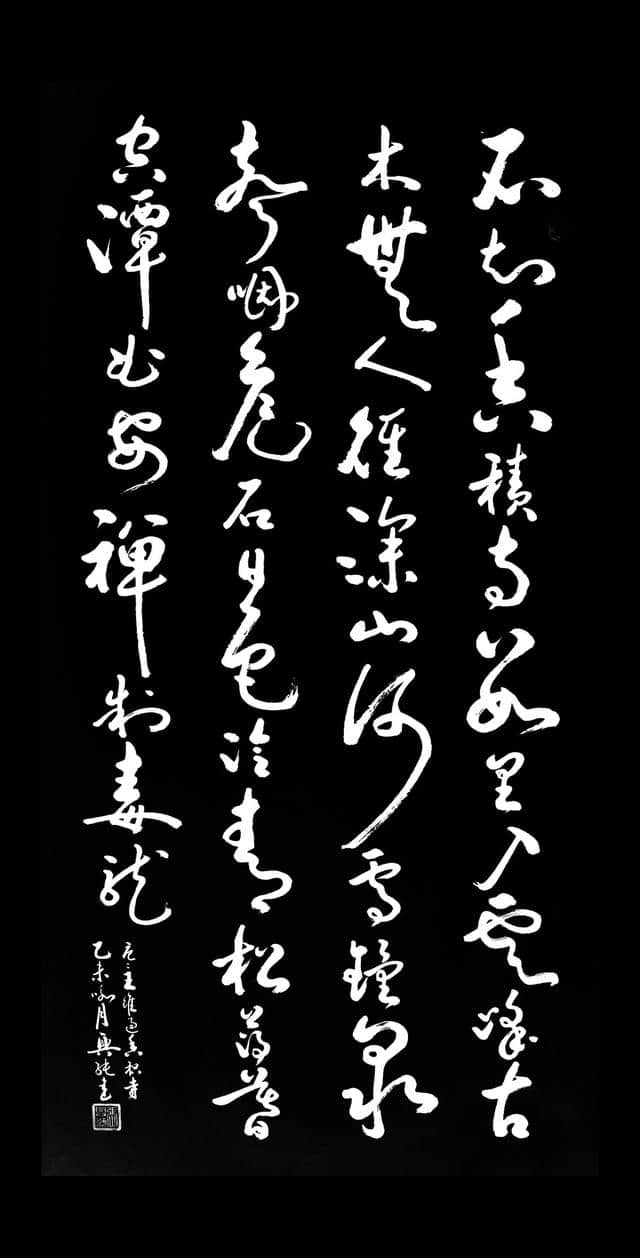 不知香積寺數里入雲峰古
木無人徑深山何處鐘泉
聲咽危石日色冷青松薄暮
空潭曲安禪制毒龍
唐王維過香積寺
乙未月興書